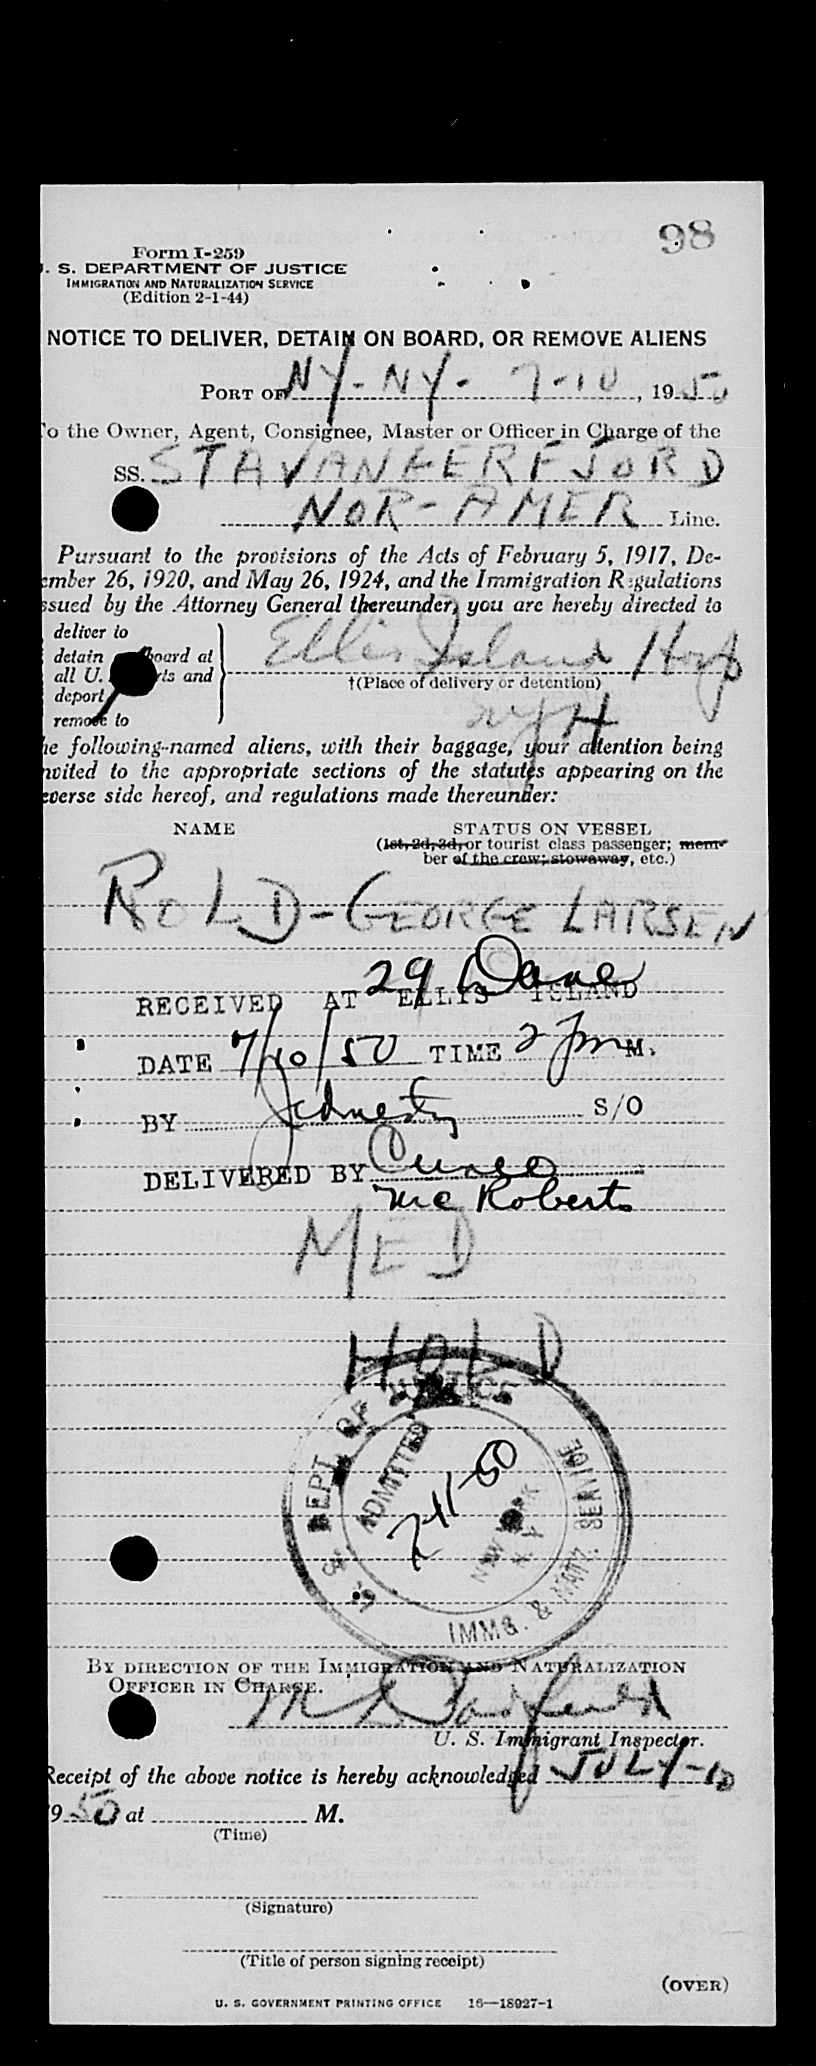 98
Form I-259
. S. DEPARTMENT OF JUSTICE
IMMIGRATION AND NATURALIZATION SERVICE
(Edition 2-1-44)
NOTICE TO DELIVER, DETAIN ON BOARD, OR REMOVE ALIENS
PORT OF NY-NY- 7-10, 1950
To the Owner, Agent, Consignee, Master or Officer in Charge of the
SS. STAVANGERFJORD
NOR-AMER Line.
Pursuant to the provisions of the Acts of February 5, 1917, De-
ember 26, 1920, and May 26, 1924, and the Immigration Regulations
ssued by the Attorney General thereunder, you are hereby directed to
deliver to
detain board at
all U. rts and
deport
remove to
Ellis Island Hosp
†(Place of delivery or detention)
NYH
he following-named aliens, with their baggage, your attention being
nvited to the appropriate sections of the statutes appearing on the
everse side hereof, and regulations made thereunder:
NAME STATUS ON VESSEL
(1st, 2d, 3d, or tourist class passenger; mem-
ber of the crew; stowaway, etc.)
ROLD-GEORGE LARSEN
29 Dane
RECEIVED AT ELLIS ISLAND
DATE 7/10/50 TIME 2 pm M.
BY S/O
DELIVERED BY
McRoberts
MED
HOLD
U. S. DEPT. OF JUSTICE
ADMITTED
7-11-50
NEW YORK
N. Y.
IMMG. & NATZ. SERVICE
BY DIRECTION OF THE IMMIGRATION AND NATURALIZATION
OFFICER IN CHARGE.
U. S. Immigrant Inspector.
Receipt of the above notice is hereby acknowledged JULY-10
1950 at M.
(Time)
(Signature)
(Title of person signing receipt)
(OVER)
U. S. GOVERNMENT PRINTING OFFICE 16—18927-1